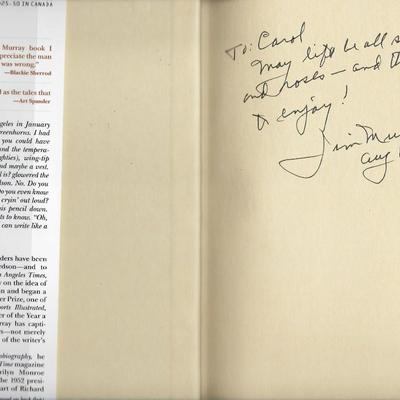 $25.50 IN CANADA
Murray book I
preciate the man
was wrong."
—Blackie Sherrod
d as the tales that
—Art Spander
ngeles in January
reenhorns. I had
you could have
nd the tempera-
ghties), wing-tip
nd maybe a vest.
l is? glowered the
dson. No. Do you
Do you even know
cryin' out loud?
his pencil down.
ts to know. "Oh,
can write like a
ders have been
edson—and to
s Angeles Times,
y on the idea of
n and began a
er Prize, one of
ports Illustrated,
er of the Year a
rray has capti-
rs—not merely
of the writer's
obiography, he
Time magazine
rilyn Monroe
he 1952 presi-
art of Richard
To: Carol
May life be all s
and roses—and th
to enjoy!
Jim Mu
Aug